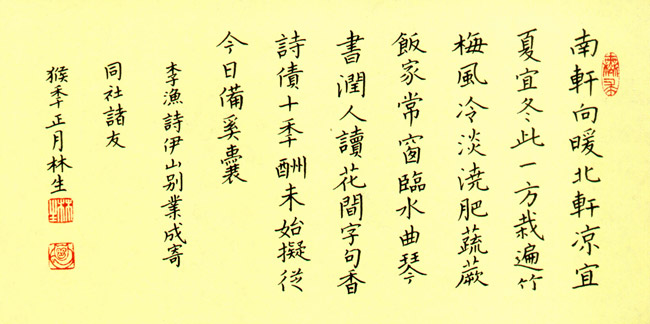 南軒向暖北軒凉宜
夏宜冬此一方栽遍竹
梅風冷淡澆肥蔬蕨
飯家常窗臨水曲琴
書潤人讀花間字句香
詩債十秊酬未始擬從
今日備奚囊
李漁詩伊山别業成寄
同社諸友
猴秊正月林生